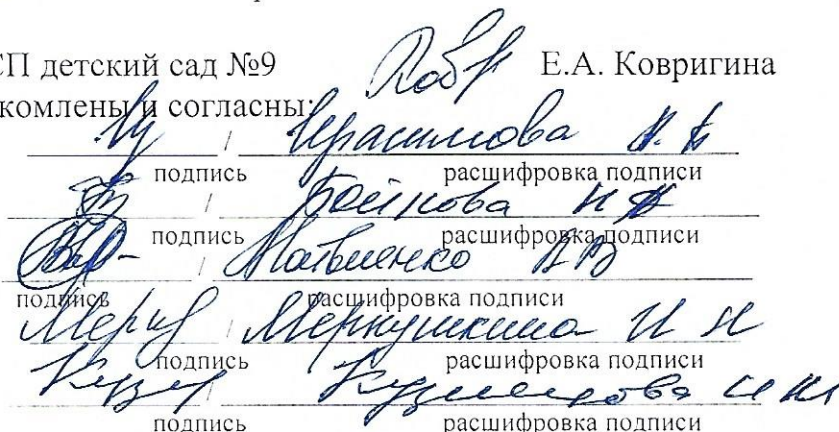 СП детский сад №9 Е.А. Ковригина
комлены и согласны:
/ Герасимова
подпись расшифровка подписи
/ Бойкова Н
подпись расшифровка подписи
/ Матвиенко АВ
подпись расшифровка подписи
/ Меркушкина И Н
подпись расшифровка подписи
Кузнецова И Н
подпись расшифровка подписи